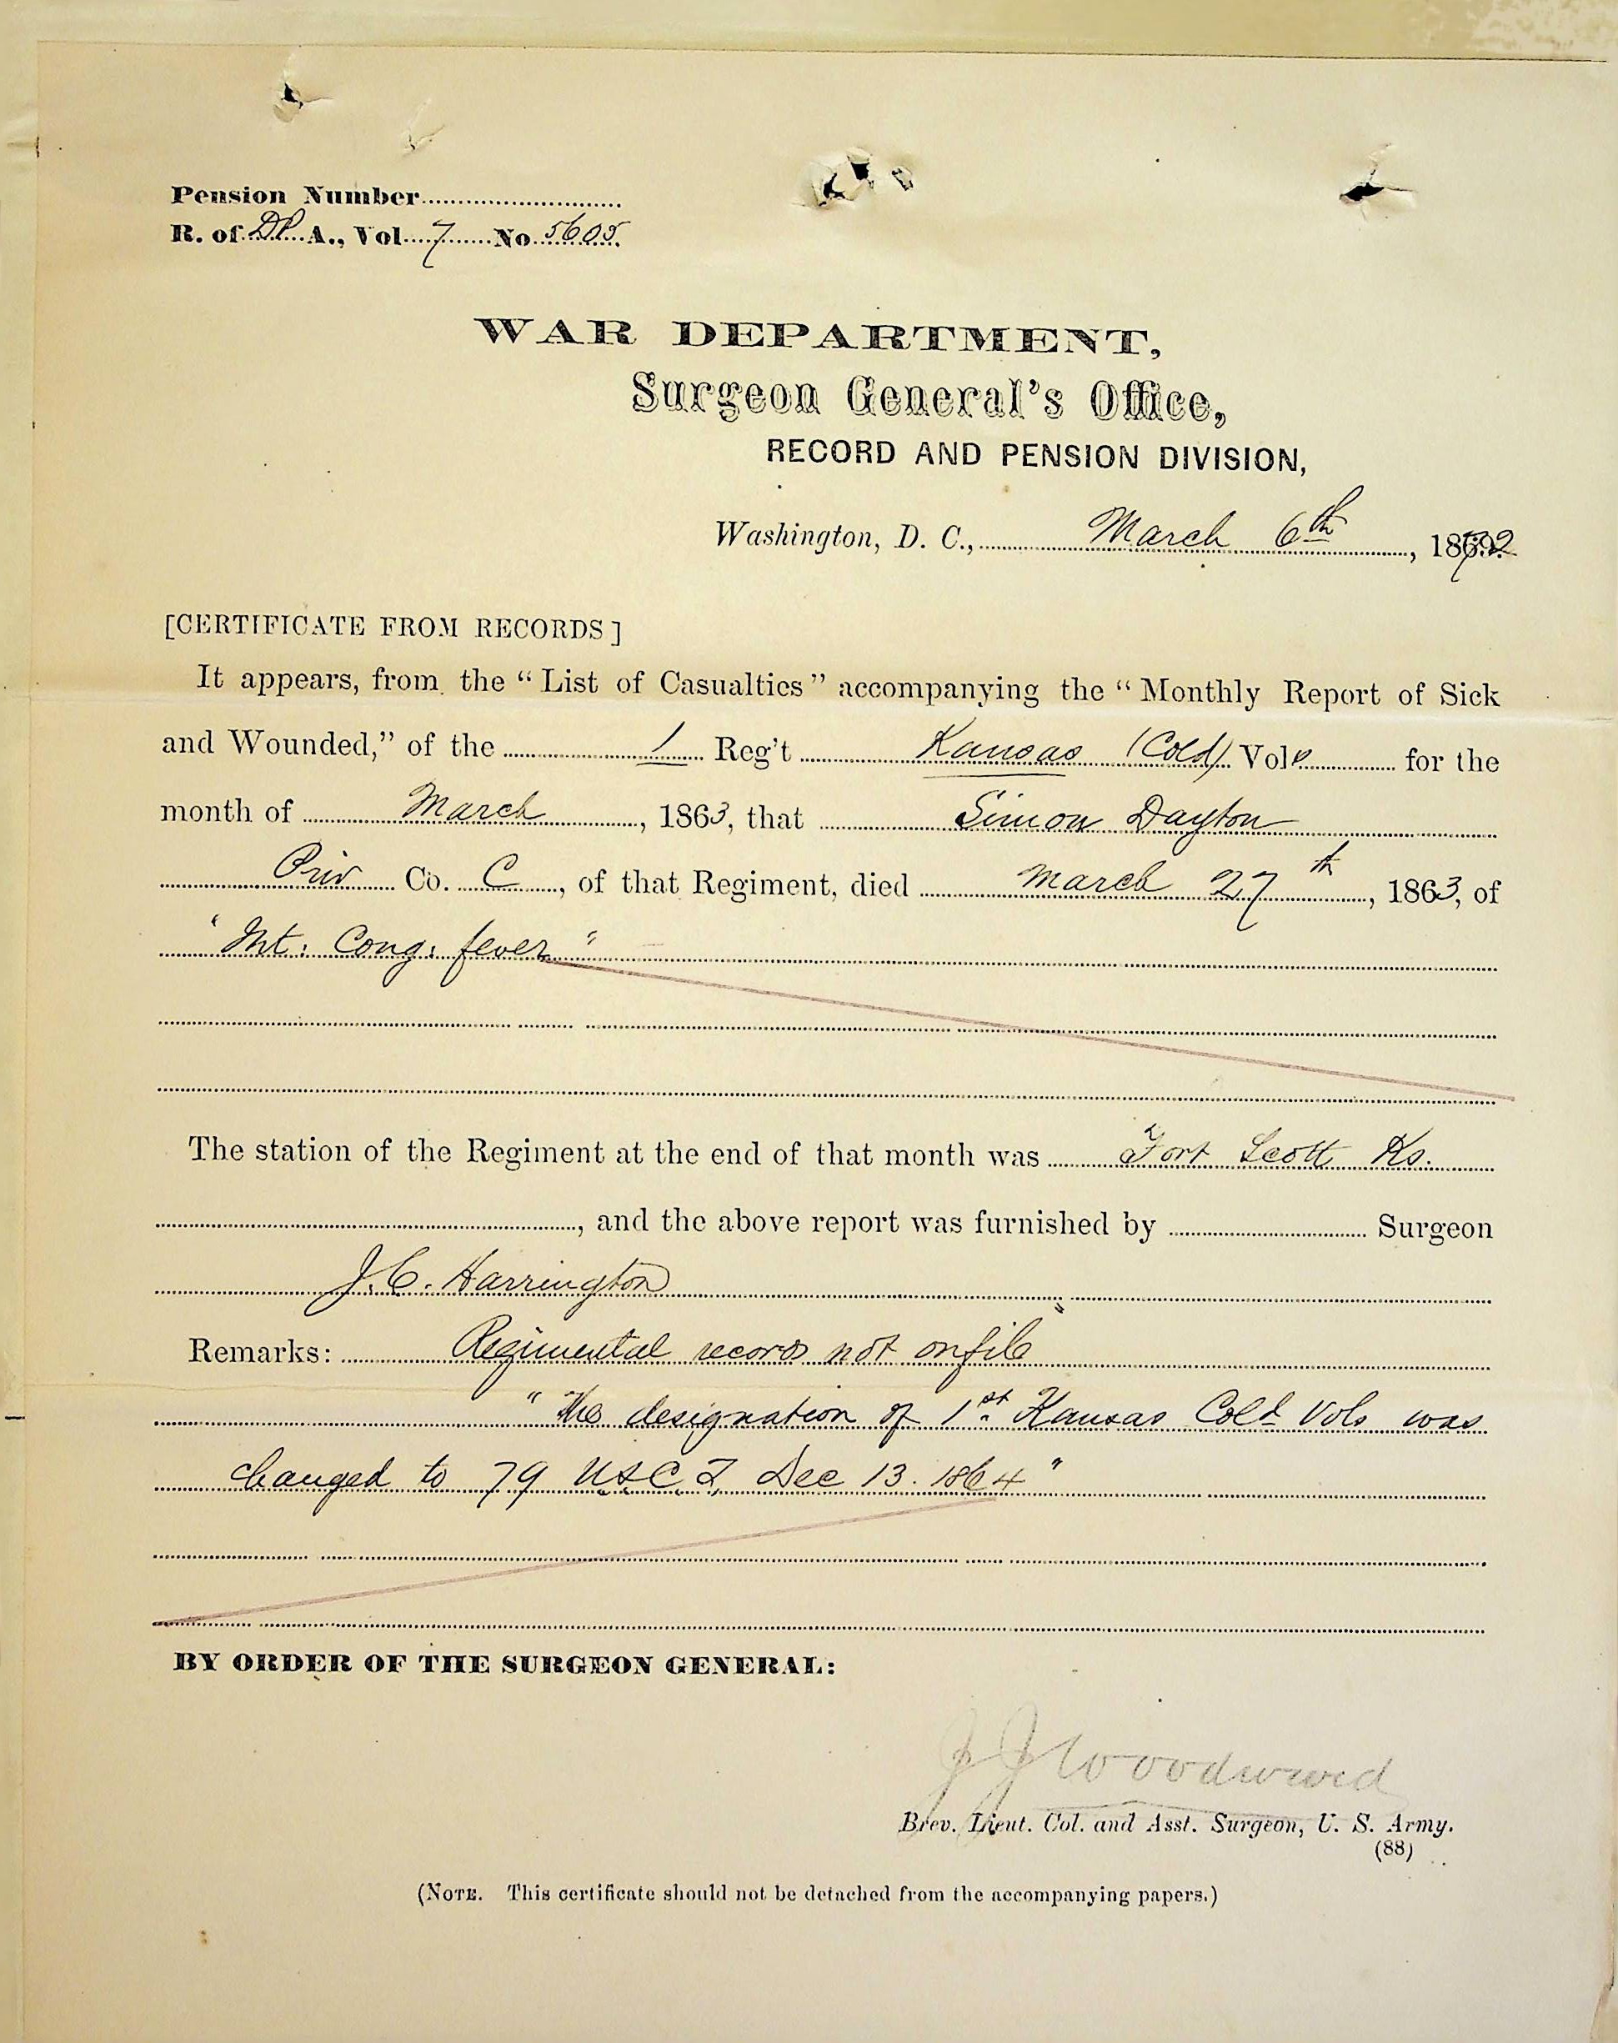 Pension Number
R. of DP. A., Vol 7 No 5605.
WAR DEPARTMENT,
Surgeon General's Office,
RECORD AND PENSION DIVISION,
Washington, D. C., March 6th, 1872
[CERTIFICATE FROM RECORDS]
It appears, from the "List of Casualties" accompanying the "Monthly Report of Sick
and Wounded," of the 1 Reg't Kansas (Cold) Vols for the
month of March, 1863, that Simon Dayton
Priv Co. C, of that Regiment, died March 27th, 1863, of
"Int: Cong: fever"
The station of the Regiment at the end of that month was Fort Scott Ks.
, and the above report was furnished by Surgeon
J. C. Harrington
Remarks: Regimental records not on file
"The designation of 1st Kansas Cold Vols was
changed to 79 U.S.C.T. Dec 13. 1864"
BY ORDER OF THE SURGEON GENERAL:
J J Woodward
Brev. Lieut. Col. and Asst. Surgeon, U. S. Army.
(88)
(NOTE. This certificate should not be detached from the accompanying papers.)